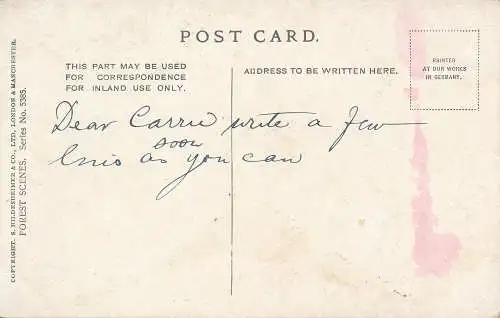 POST CARD.
THIS PART MAY BE USED
FOR CORRESPONDENCE
FOR INLAND USE ONLY.
ADDRESS TO BE WRITTEN HERE.
PRINTED
AT OUR WORKS
IN GERMANY.
Dear Carrie write a few
lines as soon you can
COPYRIGHT. S. HILDESHEIMER & CO., LTD, LONDON & MANCHESTER.
FOREST SCENES. Series No. 5385.